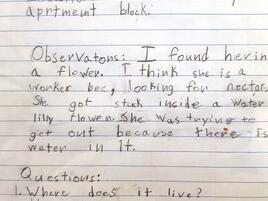 aprtment block.
Observatons: I found her in
a flower. I think she is a
worker bee, looking for nectar.
She got stuck inside a water
lilly flower. She was trying to
get out because there is
water in it.
Questions:
1. Where does it live?